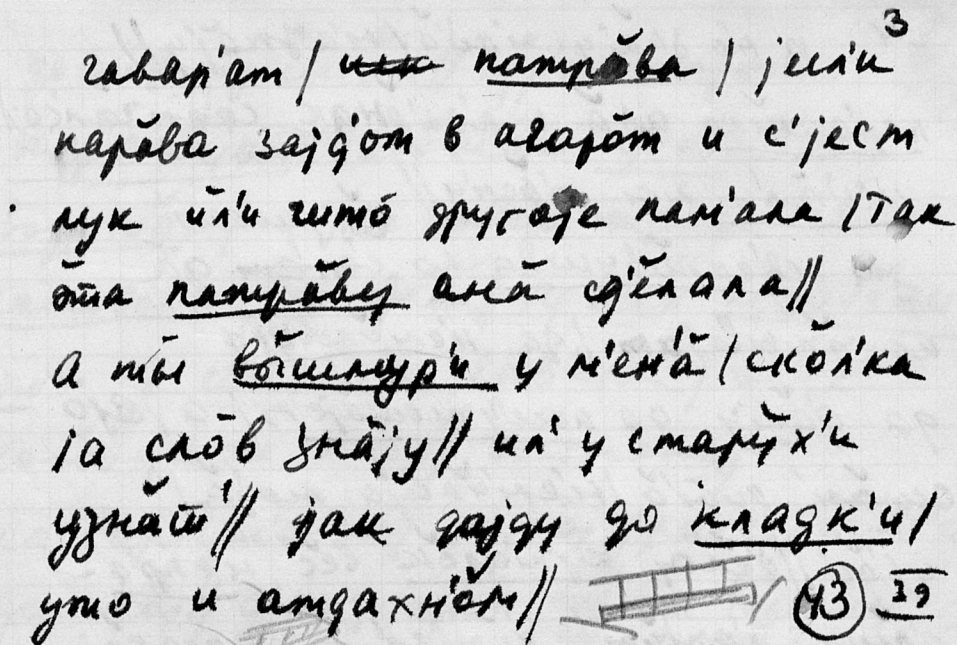 3
гавар'ат / патра́ва / jесл'и
каро́ва зајд'от в агаро́т и с'јест
лук и́л'и што́ друго́jе пам'ала / так
э́та патра́ву ана́ сд'е́лала //
а ты вы́шмур'и у м'ен'а́ / ско́л'ка
ја сло́в зна́jу // ил' у стару́х'и
узна́т' // јак дајду до кладк'и /
што и атдахн'о́м //
43 39